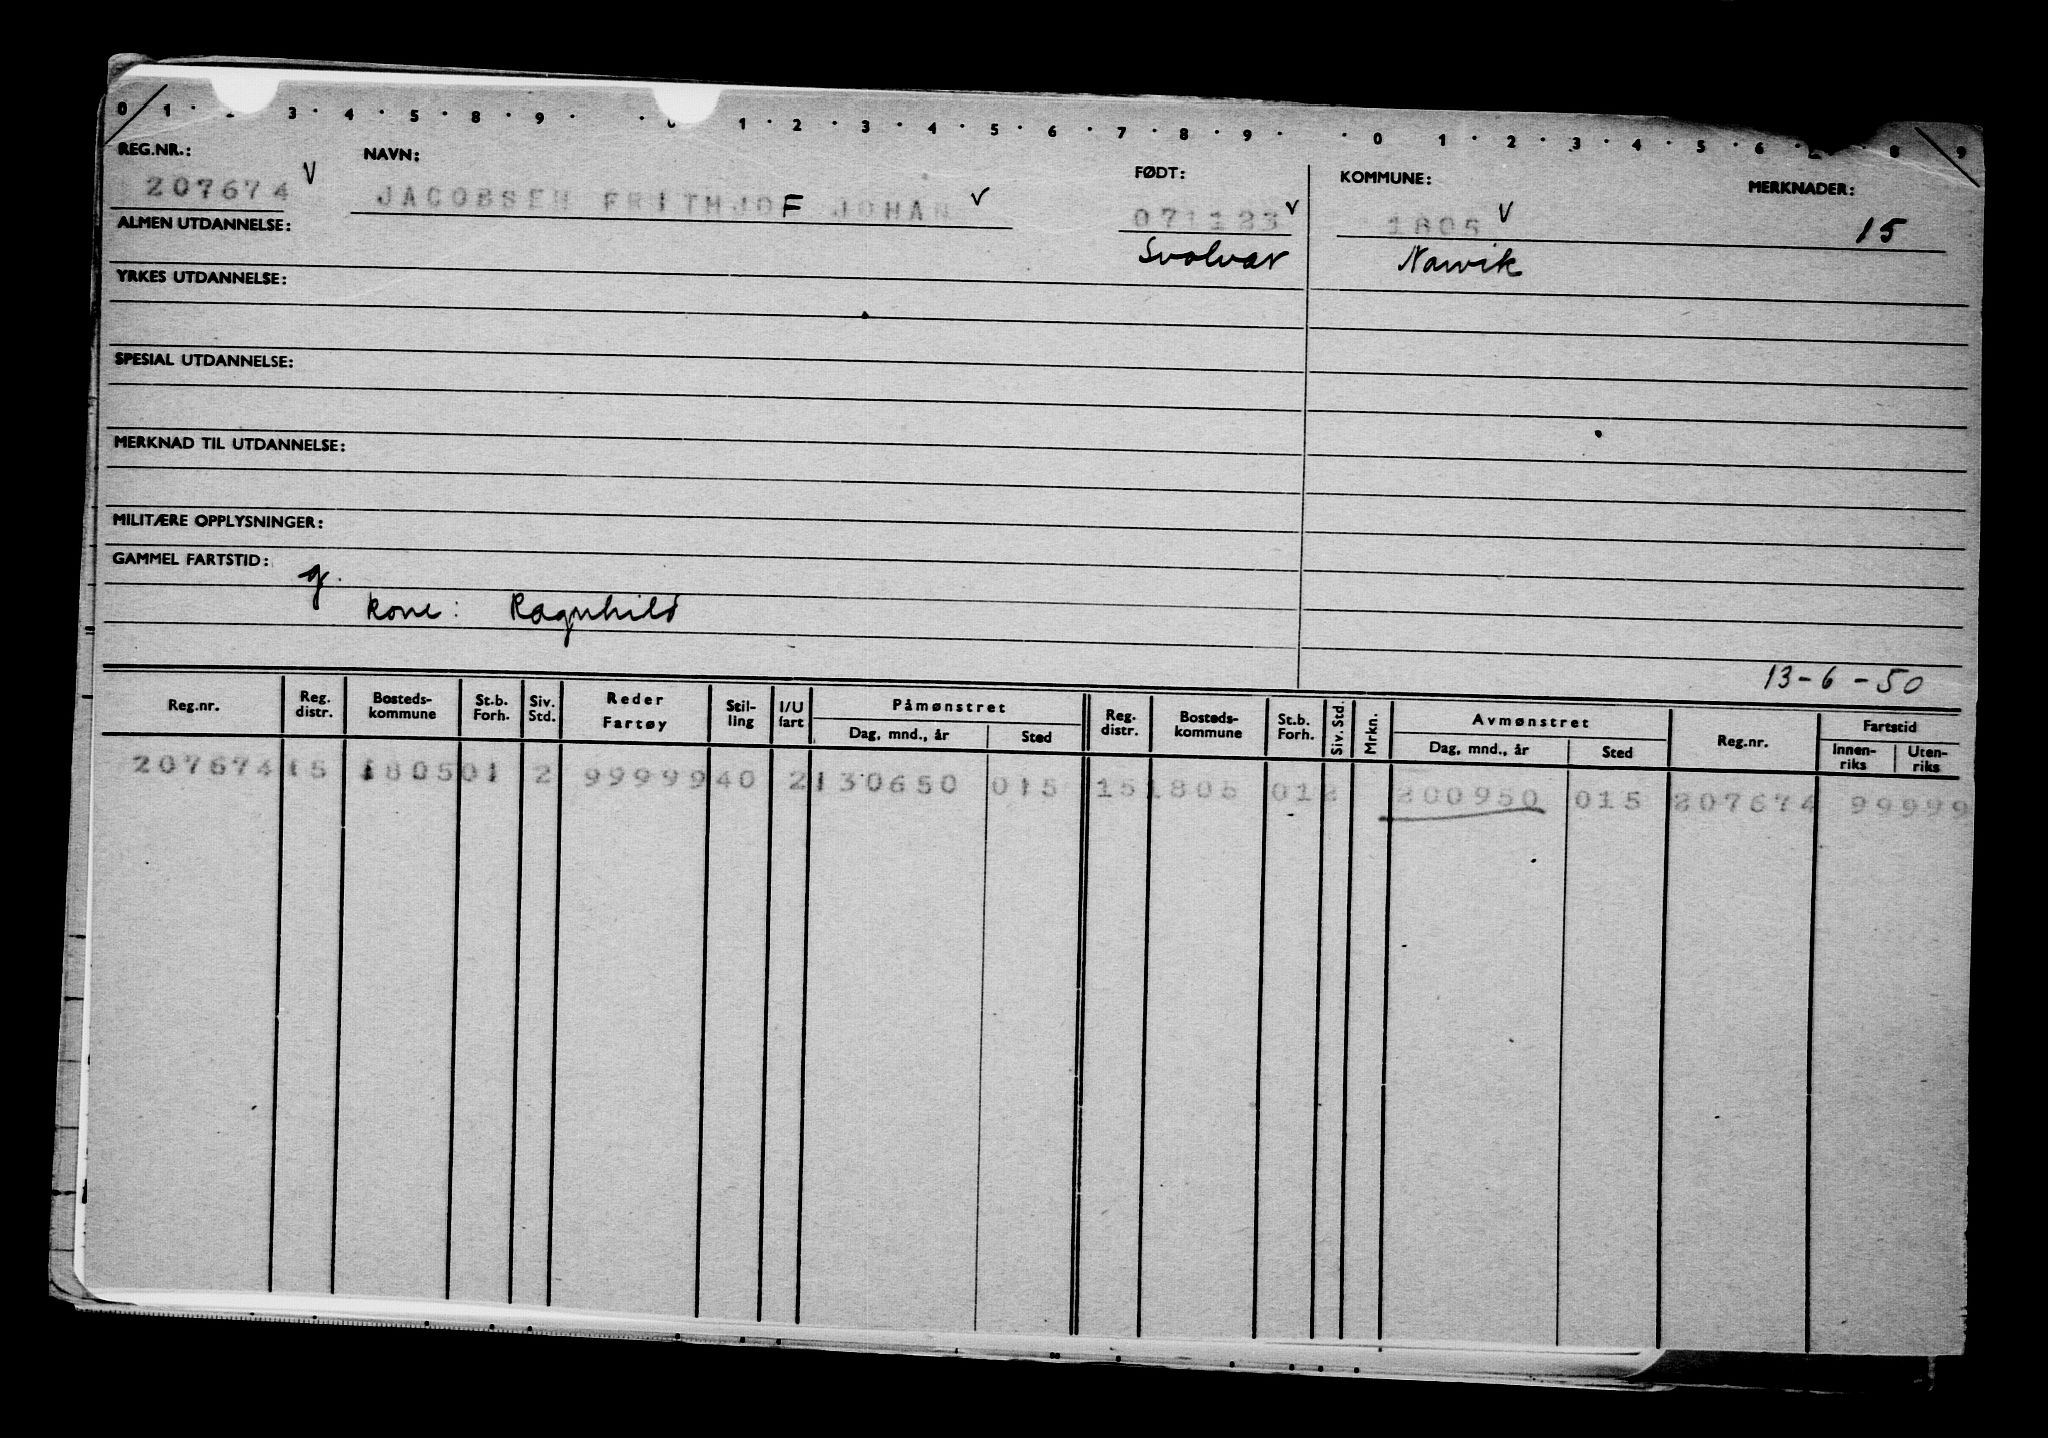 0 1 · 3 · 4 · 5 · 8 · 9 · · 1 · 2 · 3 · 4 · 5 · 6 · 7 · 8 · 9 · · 0 1 · 2 · 3 · 4 · 5 · 6 · 8 · 9
REG.NR.: NAVN: FØDT: KOMMUNE: MERKNADER:
207674 V JACOBSEN FRITHJOF JOHAN V 071123 V 1805 V 15
ALMEN UTDANNELSE: Svolvær Narvik
YRKES UTDANNELSE:
SPESIAL UTDANNELSE:
MERKNAD TIL UTDANNELSE:
MILITÆRE OPPLYSNINGER:
GAMMEL FARTSTID:
g.
kone: Ragnhild
13-6-50
Reg.nr. Reg. distr. Bosteds-kommune St.b. Forh. Siv. Std. Reder Fartøy Stil-ling I/U fart Påmønstret Dag, mnd., år Sted Reg. distr. Bosteds-kommune St.b. Forh. Siv. Std. Mrkn. Avmønstret Dag, mnd., år Sted Reg.nr. Fartstid Innen-riks Uten-riks
207674 15 1805 01 2 99999 40 2 130650 015 15 1805 01 2 200950 015 207674 99999